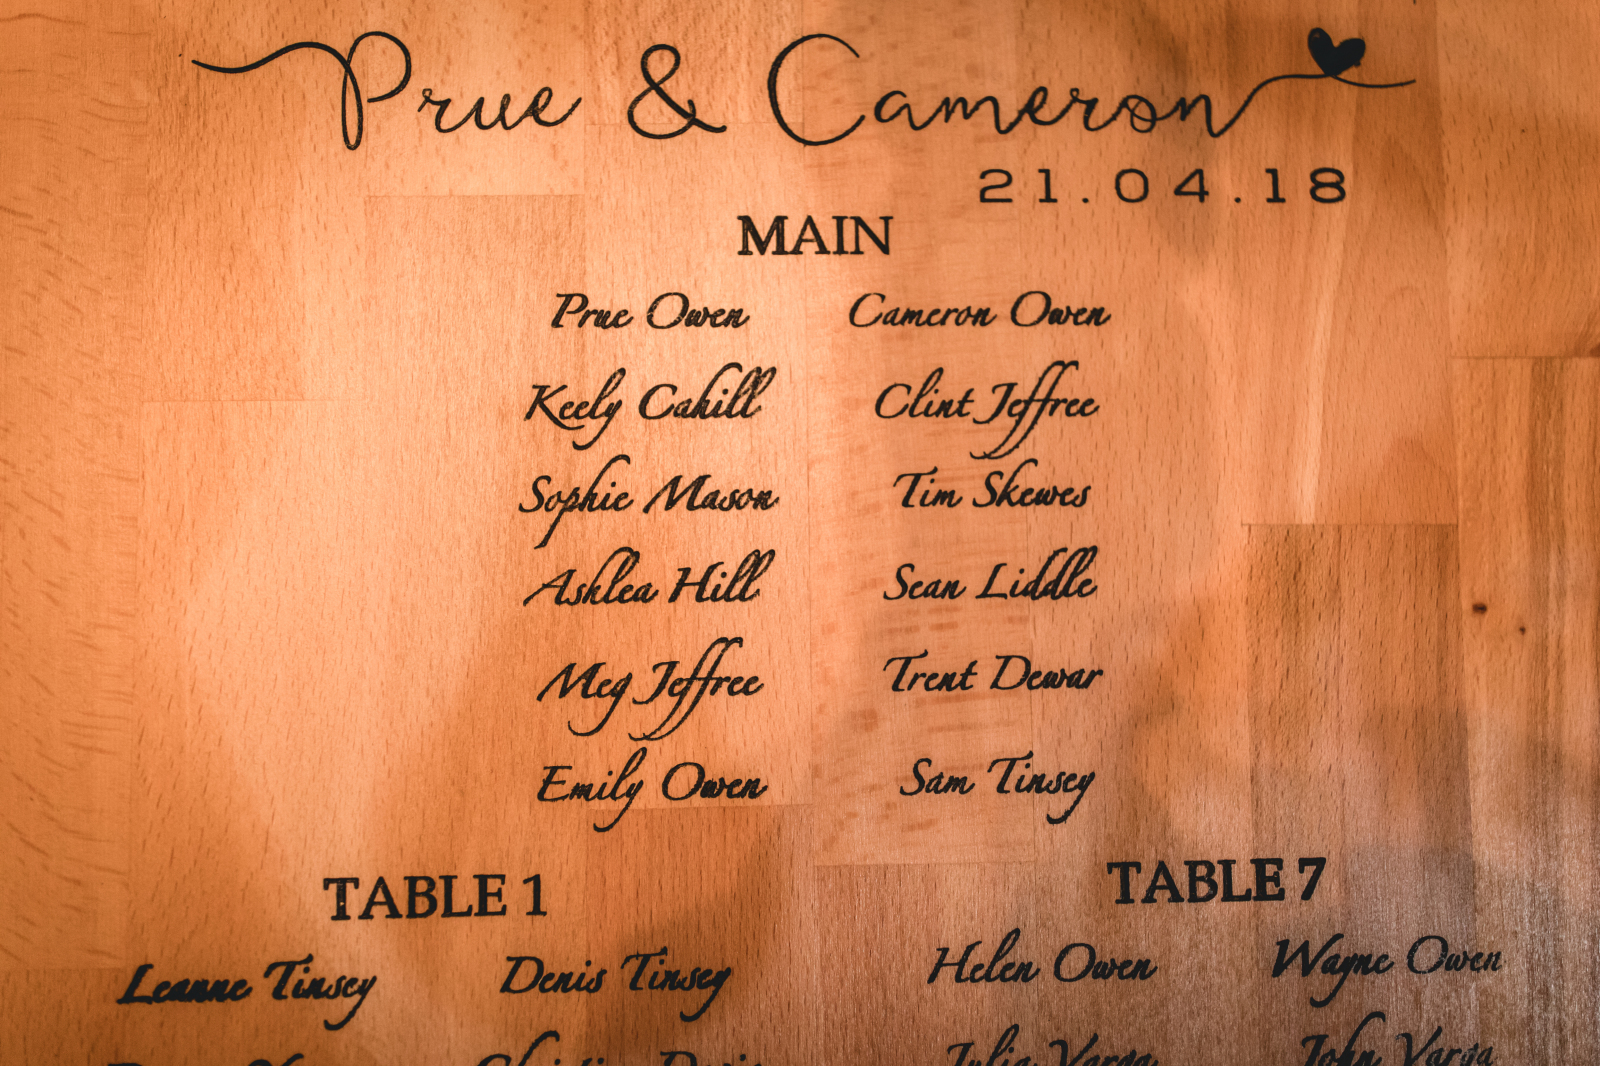 Prue & Cameron
21.04.18
MAIN
Prue Owen Cameron Owen
Keely Cahill Clint Jeffree
Sophie Mason Tim Skewes
Ashlea Hill Sean Liddle
Meg Jeffree Trent Dewar
Emily Owen Sam Tinsey
TABLE 1 TABLE 7
Leanne Tinsey Denis Tinsey Helen Owen Wayne Owen
Julia Varga John Varga